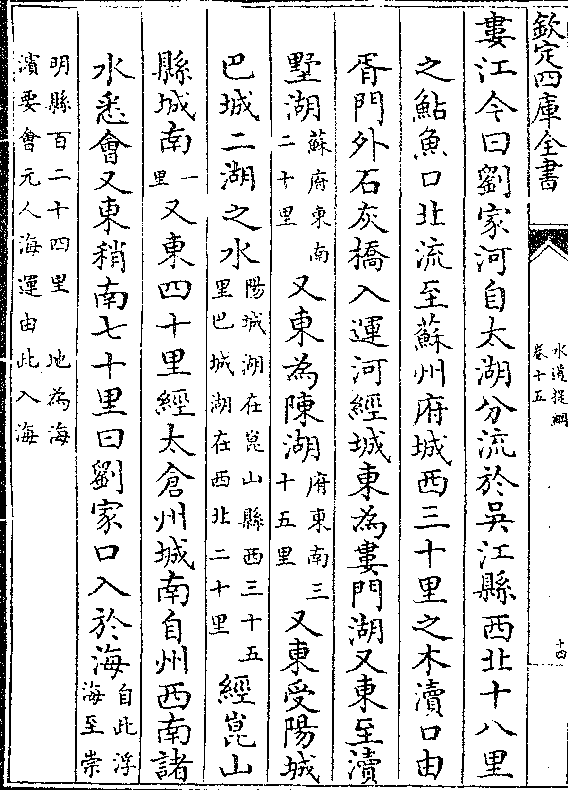 欽定四庫全書
水道提綱
卷十五
十四
婁江今曰劉家河自太湖分流於吳江縣西北十八里
之鮎魚口北流至蘇州府城西三十里之木瀆口由
胥門外石灰橋入運河經城東為婁門湖又東至瀆
墅湖蘇府東南二十里又東為陳湖府東南三十五里又東受陽城
巴城二湖之水陽城湖在崑山縣西三十五里巴城湖在西北二十里經崑山
縣城南一里又東四十里經太倉州城南自州西南諸
水悉會又東稍南七十里曰劉家口入於海自此浮海至崇
明縣百二十四里 地為海濱要會元人海運由此入海